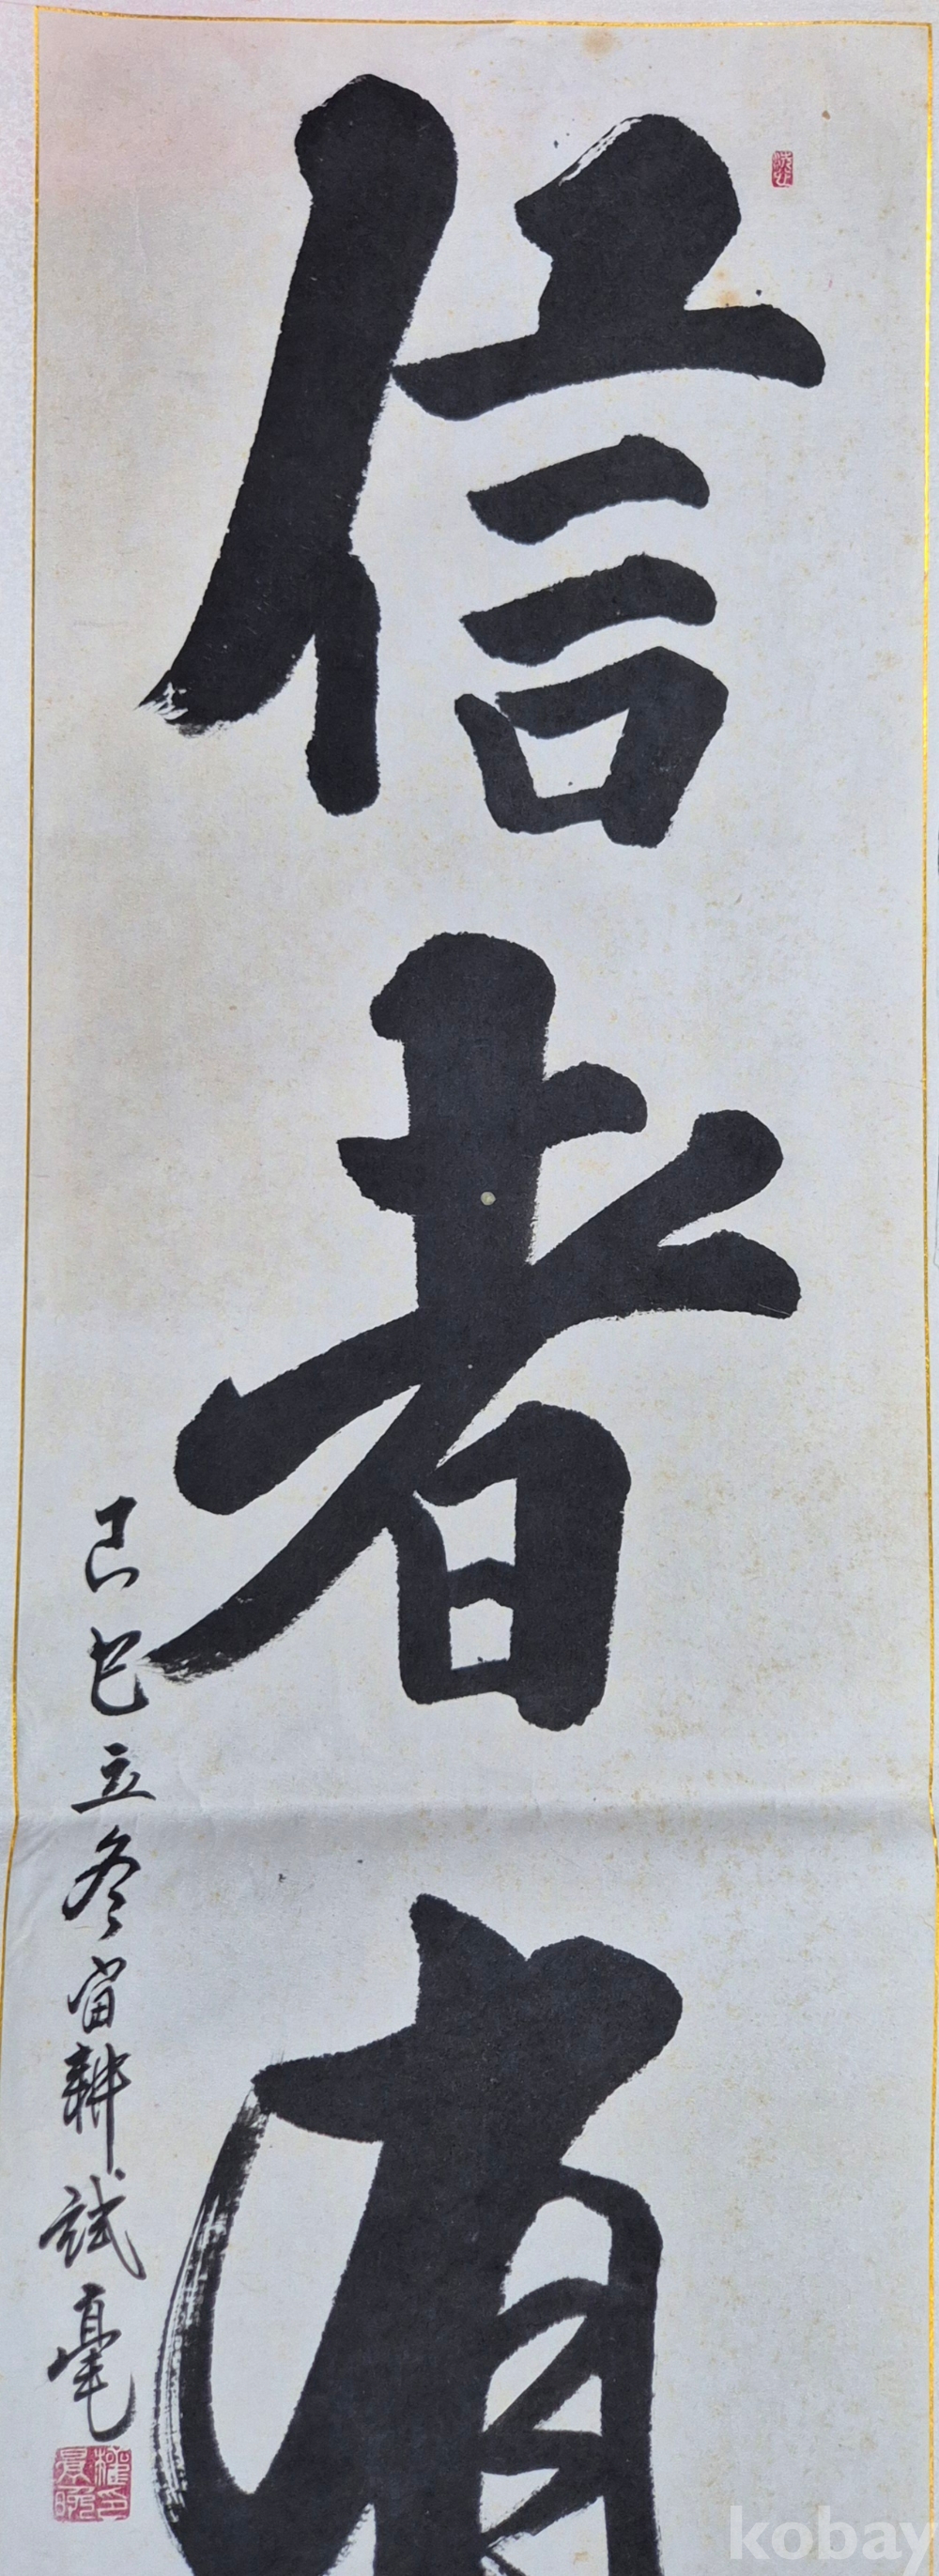 信者有
己巳立冬宙耕試毫
kobay